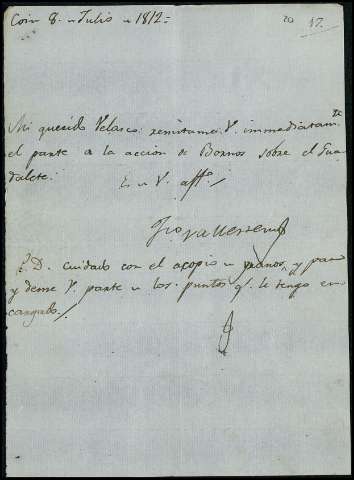 Coin 8. u Julio u 1812=
20 17.
Mi querido Velasco: remitame V. immediatamte
el parte a la acción de Bornos sobre el Gua
dalete.
Es u V. affo.
P.D. cuidado con el acopio u granos, y paja
y deme V. parte u los puntos q. le tengo en
cargado.